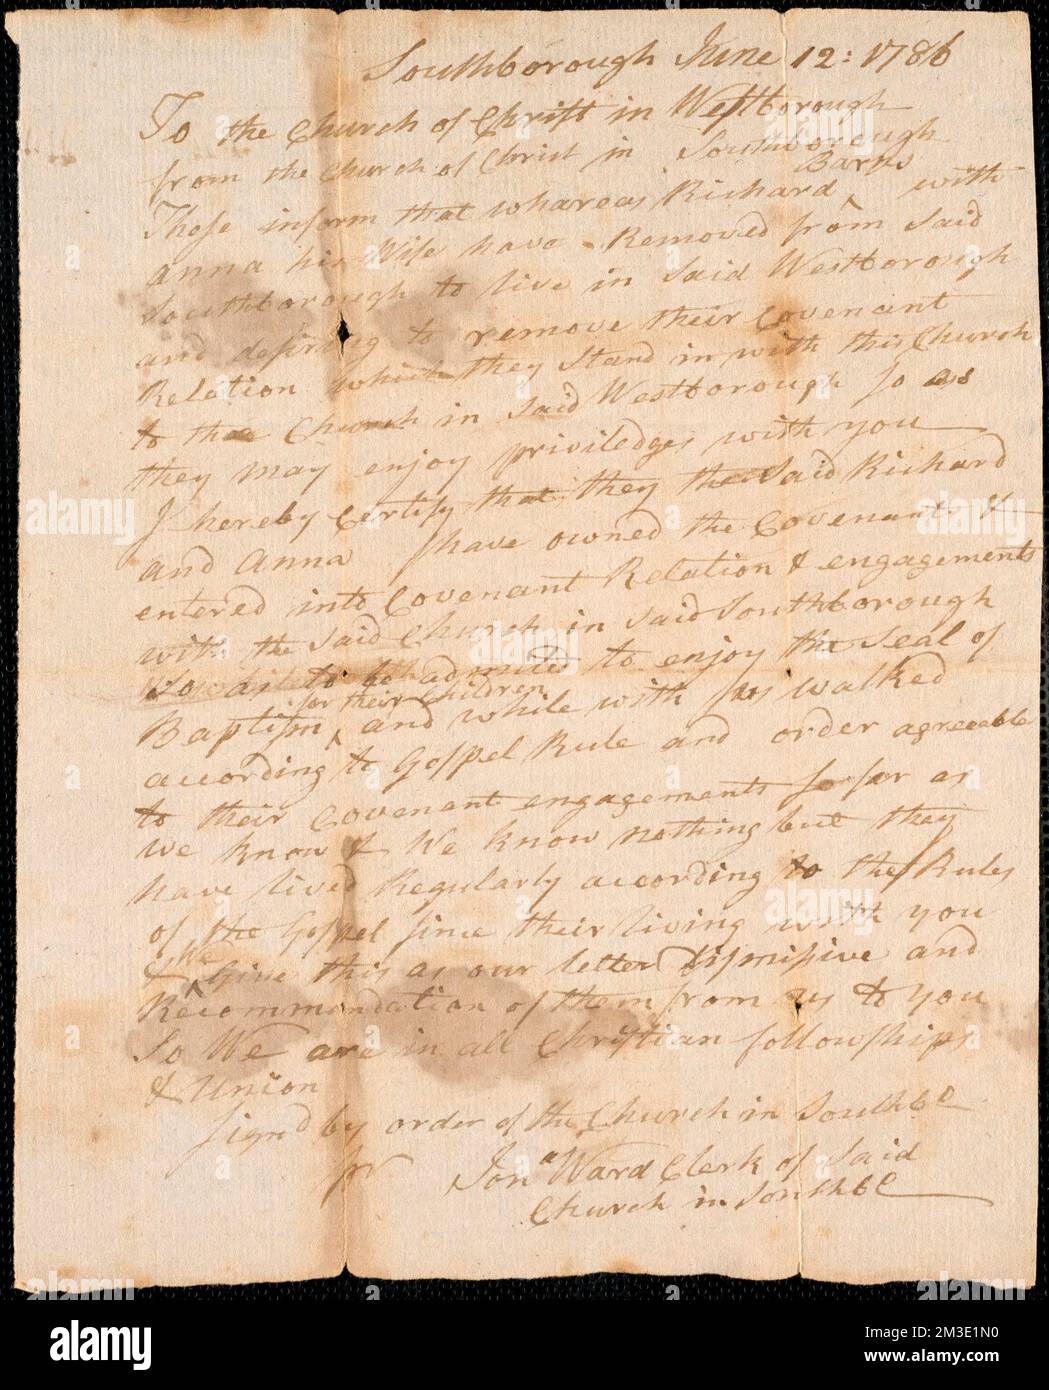 Southborough June 12: 1786
To the Church of Christ in Westborough
from the Church of Christ in Southborough
Barns
These inform that whareas Richard ^ with
anna his Wife have Removed from Said
Southborough to live in Said Westborough
and desiring to remove their Covenant
Relation which they Stand in with this Church
to the Church in Said Westborough So as
they may enjoy priviledges with you
I hereby Certify that they the Said Richard
and Anna have owned the Covenant &
entered into Covenant Relation & engagements
with the Said Church in Said Southborough
So as to be admited to enjoy the Seal of
for their Children
Baptism ^ and while with us walked
according to Gospel Rule and order agreeable
to their Covenant engagements So far as
we know & We know nothing but they
have lived Regularly according to the Rules
of the Gospel Since their living with you
We
& ^ Give this as our letter Dismisive and
Recommondation of them from us to you
So We are in all Christian followships
& Union
Signd by order of the Church in Southbo
pr Jona Ward Clerk of Said
Church in Southbo
alamy
Image ID: 2M3E1N0
www.alamy.com